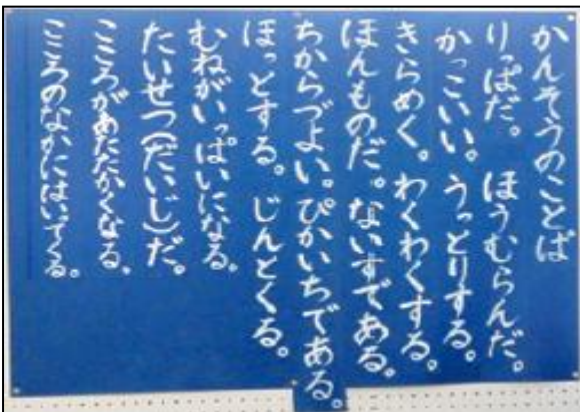 かんそうのことば
りっぱだ。 ほうむらんだ。
かっこいい。 うっとりする。
きらめく。わくわくする。
ほんものだ。ないすである。
ちからづよい。ぴかいちである。
ほっとする。 じんとくる。
むねがいっぱいになる。
たいせつ(だいじ)だ。
こころがあたたかくなる。
こころのなかにはいってくる。